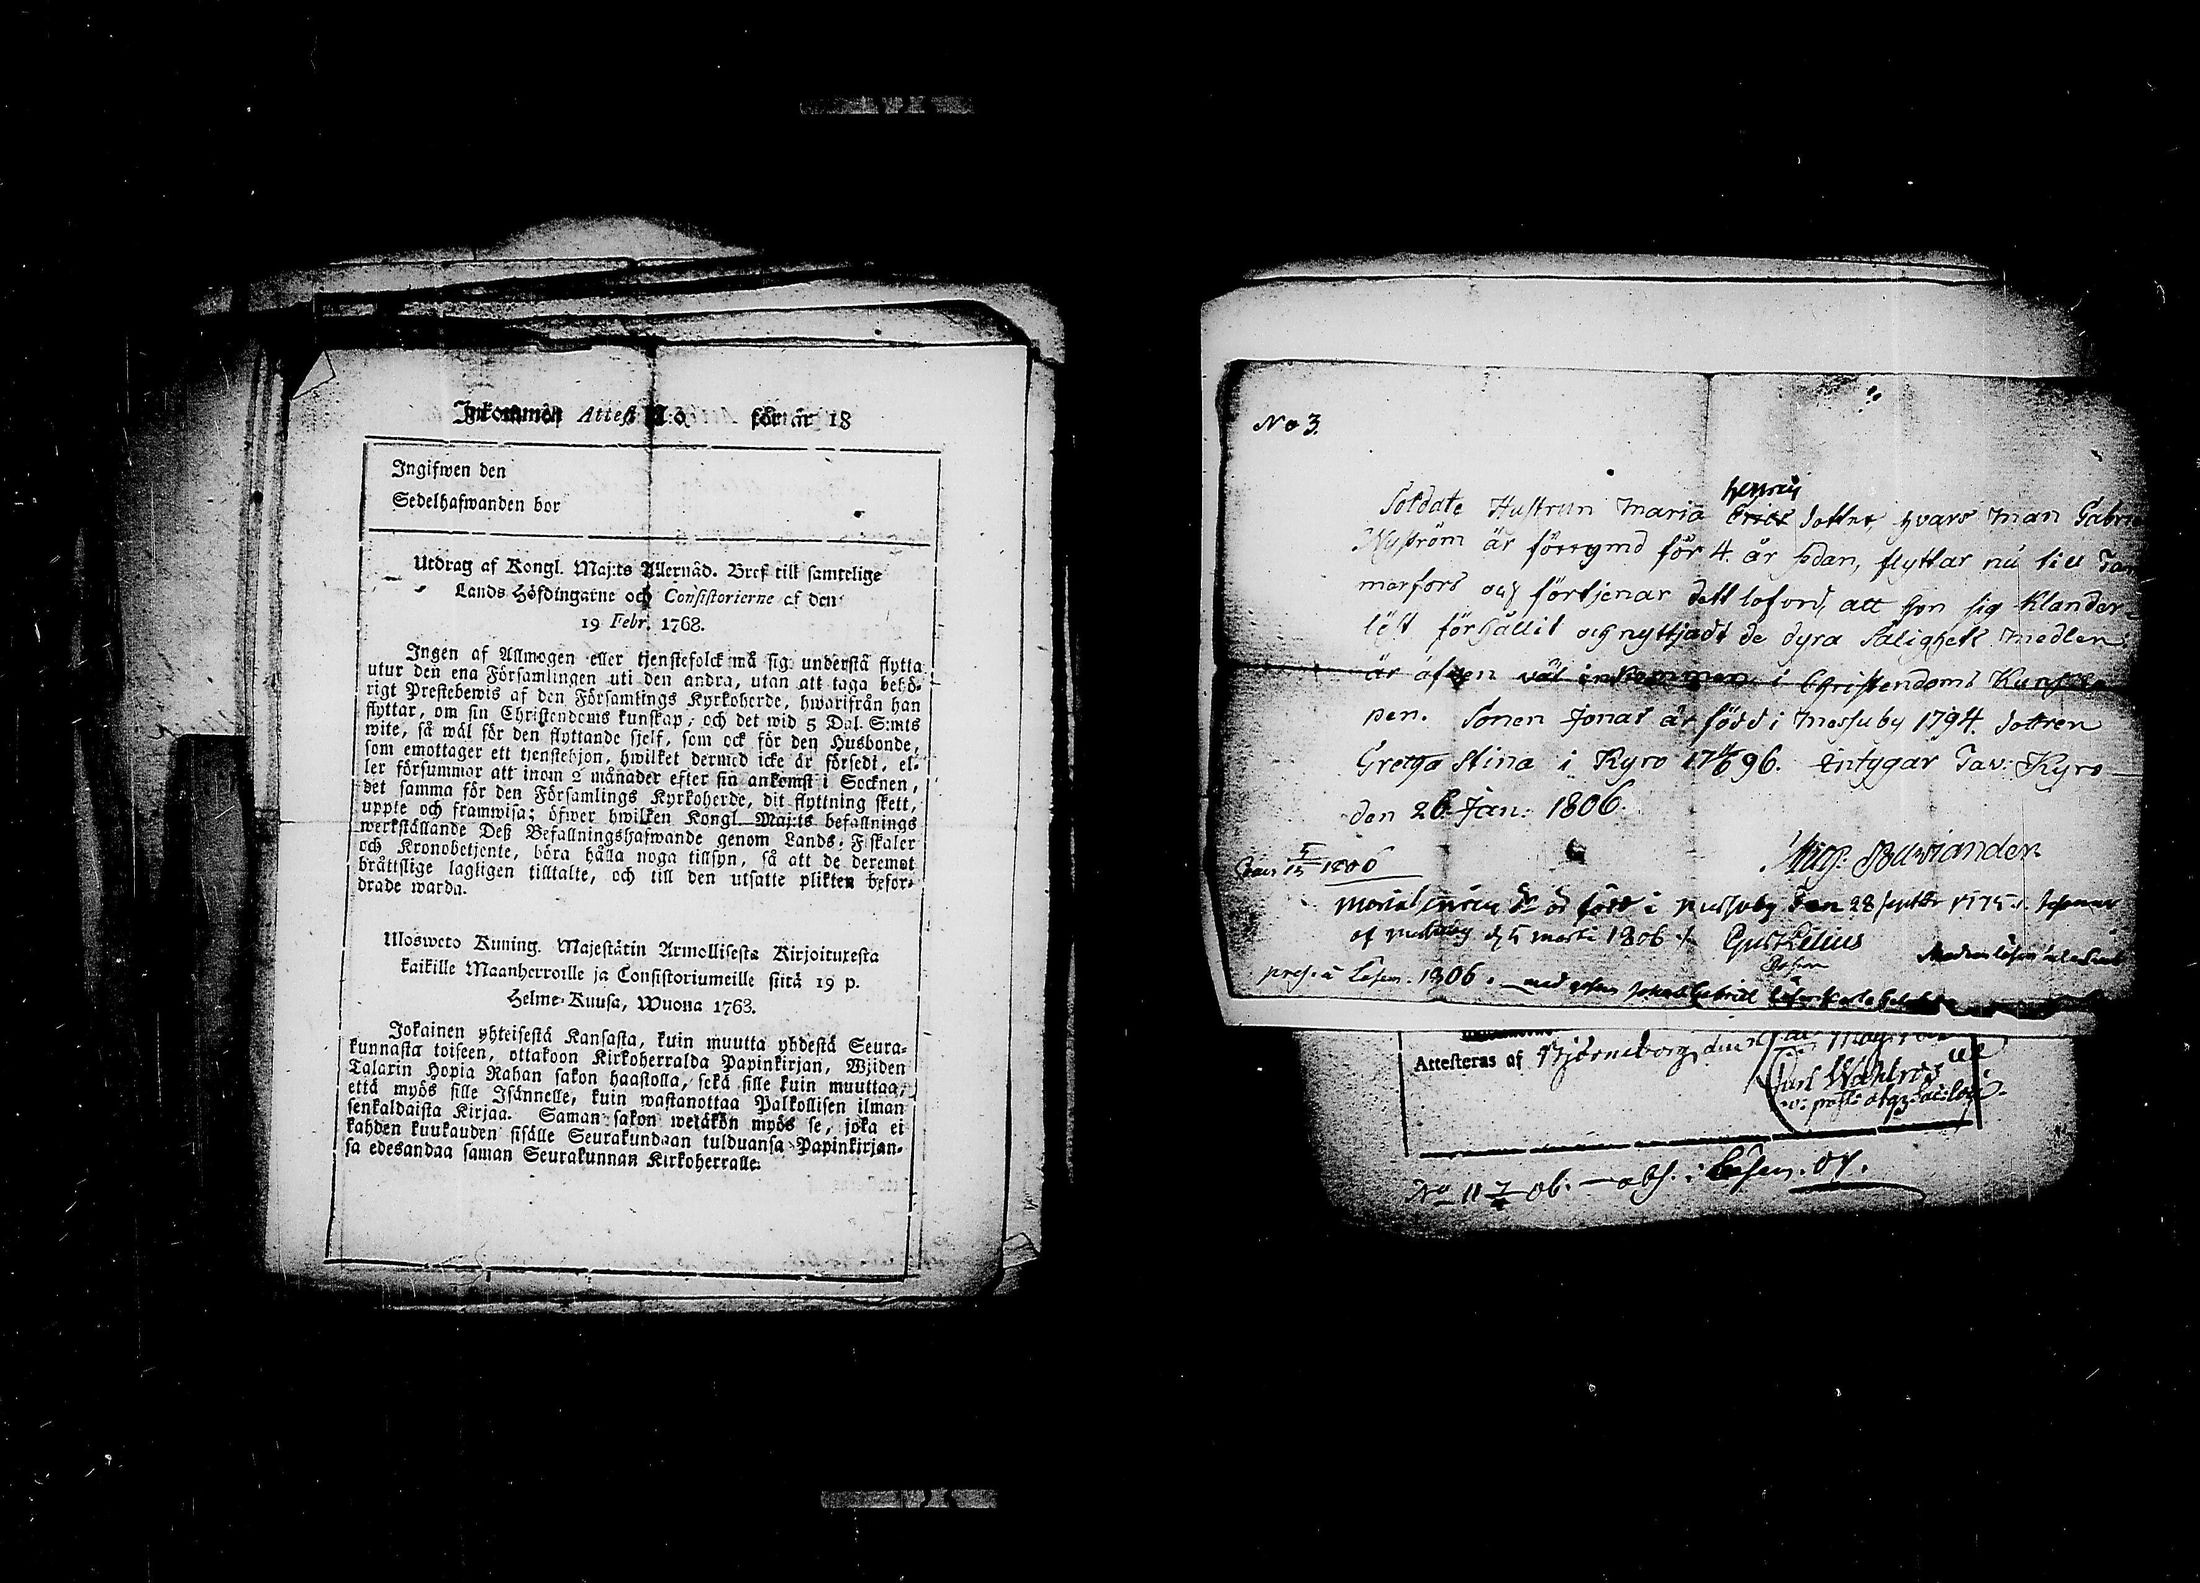 Inkommen Attest N:o för år 18
Ingifwen den
Sedelhafwanden bor
Utdrag af Kongl. Maj:ts Allernåd. Bref till samtelige
Lands Höfdingarne och Consistorierne af den
19 Febr. 1768.
Ingen af Allmogen eller tjenstefolck må sig understå flytta
utur den ena Församlingen uti den andra, utan att taga behö-
rigt Prestebewis af den Församlings Kyrkoherde, hwarifrån han
flyttar, om sin Christendoms kunskap, och det wid 5 Dal. S:mts
wite, så wäl för den flyttande sjelf, som ock för den Husbonde,
som emottager ett tjenstehjon, hwilket dermed icke är försedt, el-
ler försummar att inom 2 månader efter sin ankomst i Socknen,
det samma för den Församlings Kyrkoherde, dit flyttning skett,
uppte och framwisa; öfwer hwilken Kongl. Maj:ts befallnings
werkställande Deß Befallningshafwande genom Lands-Fiskaler
och Kronobetjente, böra hålla noga tillsyn, så att de deremot
bråttslige lagligen tilltalte, och till den utsatte plikten befor-
drade warda.
Ulosweto Kuning. Majestätin Armollisesta Kirjoituxesta
kaikille Maanherroille ja Consistoriumeille siitä 19 p.
Helme-Kuusa, Wuona 1763.
Jokainen yhteisestä Kansasta, kuin muutta yhdestä Seura-
kunnasta toiseen, ottakoon Kirkoherralda Papinkirjan, Wjiden
Talarin Hopia Rahan sakon haastolla, sekä sille kuin muuttaa,
että myös sille Isännelle, kuin wastanottaa Palkollisen ilman
senkaldaista Kirjaa. Saman sakon wetäkön myös se, joka ei
kahden kuukauden sisälle Seurakundaan tulduansa Papinkirjan-
sa edesandaa saman Seurakunnan Kirkoherralle.
No 3.
Henrics
Soldate Hustrun Maria Erics dotter hvars man Gabri
Nyström är förrymd för 4. år sedan, flyttar nu till Tam
merfors och förtjenar dett loford, att hon sig klander-
löst förhållit och nyttjadt de dyra Salighets medlen
är äfven väl inkommen i Christendoms Kunska
pen. Sonen Jonas är född i Messuby 1794. dottren
Gretha Stina i Kyro 1796. intygar Tav: Kyro
den 26. Jan: 1806.
1806
Maria är född i Messuby den 28 1775
af den 5 martii 1806
1806. med
Attesteras af Björneborg, den
Carl Wahlroos
No 11 06. 07.